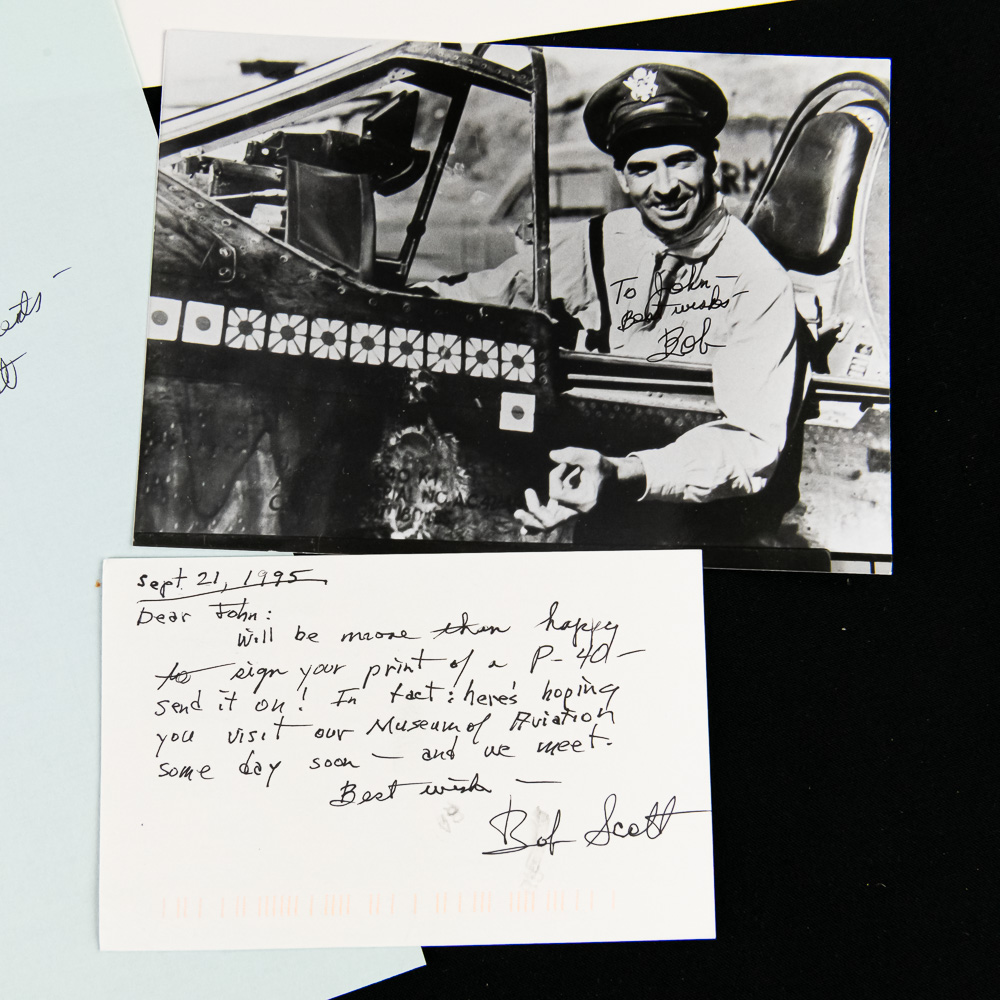 To John –
Best wishes –
Bob
Sept 21, 1995
Dear John:
Will be more than happy
to sign your print of a P-40 –
send it on! In fact: here's hoping
you visit our Museum of Aviation
some day soon – and we meet.
Best wish –
Bob Scott